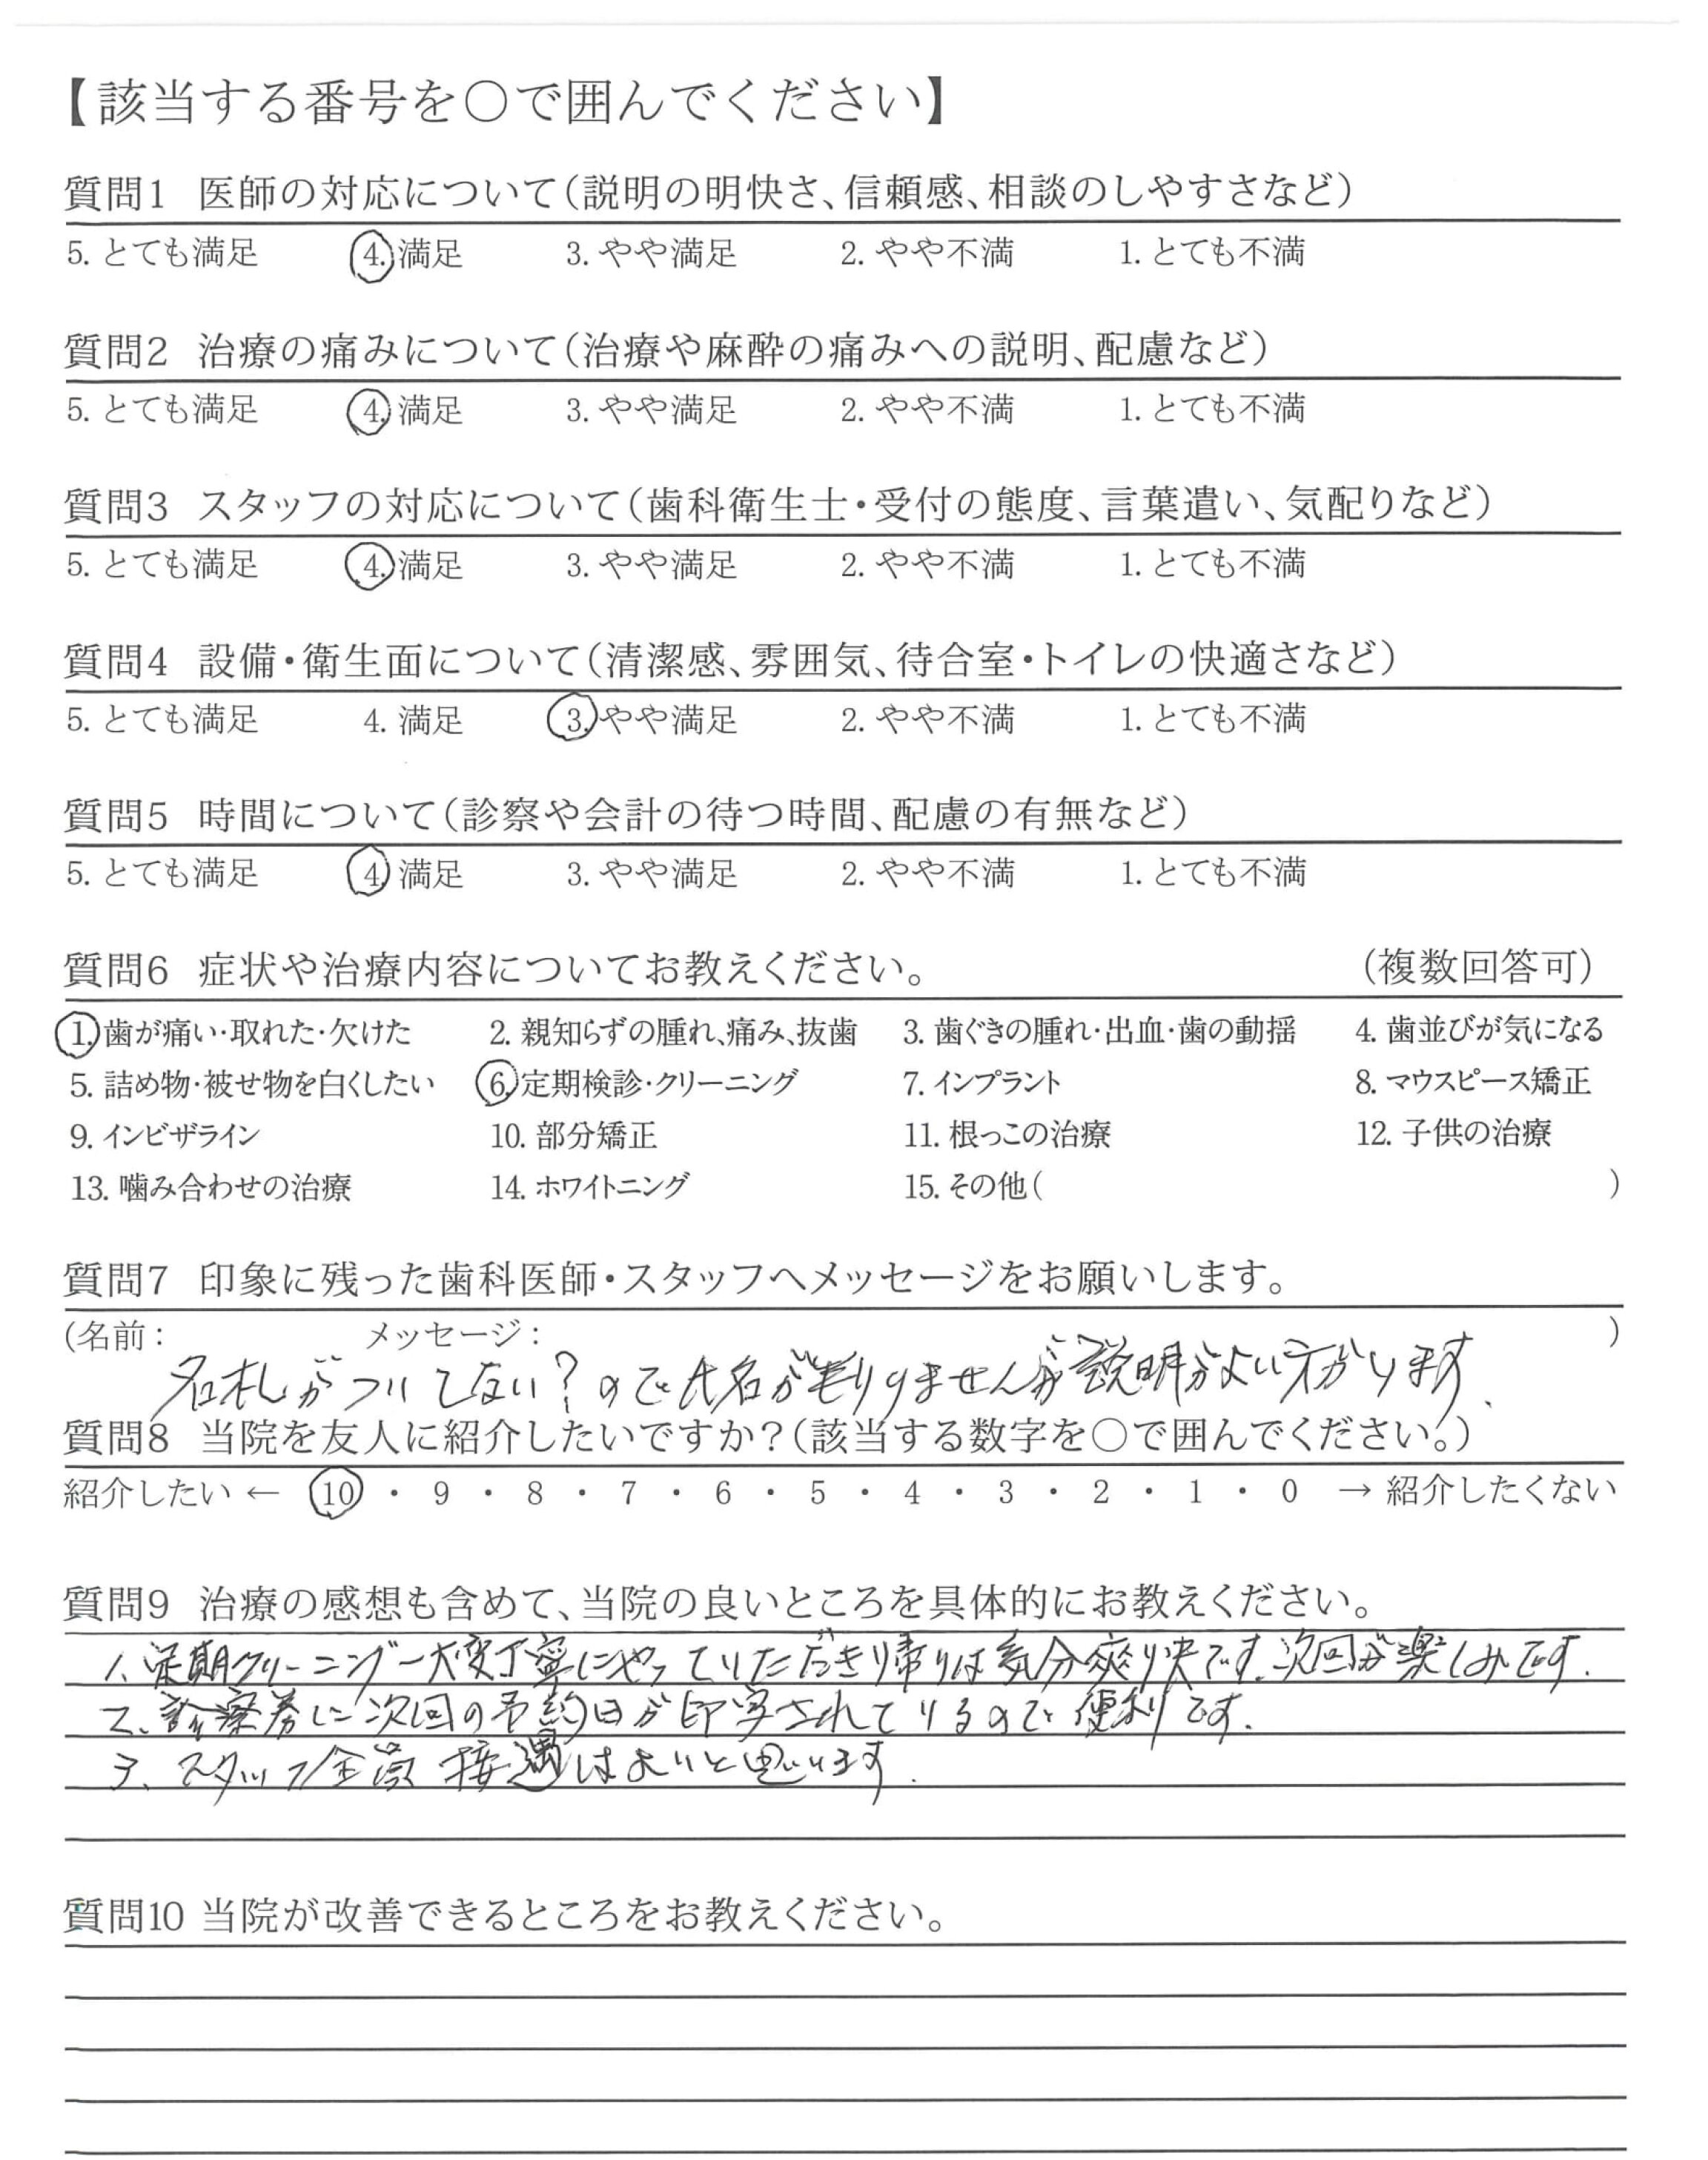 【該当する番号を○で囲んでください】
質問1 医師の対応について(説明の明快さ、信頼感、相談のしやすさなど)
5. とても満足 4. 満足 3. やや満足 2. やや不満 1. とても不満
質問2 治療の痛みについて(治療や麻酔の痛みへの説明、配慮など)
5. とても満足 4. 満足 3. やや満足 2. やや不満 1. とても不満
質問3 スタッフの対応について(歯科衛生士・受付の態度、言葉遣い、気配りなど)
5. とても満足 4. 満足 3. やや満足 2. やや不満 1. とても不満
質問4 設備・衛生面について(清潔感、雰囲気、待合室・トイレの快適さなど)
5. とても満足 4. 満足 3. やや満足 2. やや不満 1. とても不満
質問5 時間について(診察や会計の待つ時間、配慮の有無など)
5. とても満足 4. 満足 3. やや満足 2. やや不満 1. とても不満
質問6 症状や治療内容についてお教えください。 (複数回答可)
1. 歯が痛い・取れた・欠けた 2. 親知らずの腫れ、痛み、抜歯 3. 歯ぐきの腫れ・出血・歯の動揺 4. 歯並びが気になる
5. 詰め物・被せ物を白くしたい 6. 定期検診・クリーニング 7. インプラント 8. マウスピース矯正
9. インビザライン 10. 部分矯正 11. 根っこの治療 12. 子供の治療
13. 噛み合わせの治療 14. ホワイトニング 15. その他( )
質問7 印象に残った歯科医師・スタッフへメッセージをお願いします。
(名前: メッセージ: )
名札がついてない?ので氏名が判りませんが説明がよい方がいます.
質問8 当院を友人に紹介したいですか?(該当する数字を○で囲んでください。)
紹介したい ← 10 ・ 9 ・ 8 ・ 7 ・ 6 ・ 5 ・ 4 ・ 3 ・ 2 ・ 1 ・ 0 → 紹介したくない
質問9 治療の感想も含めて、当院の良いところを具体的にお教えください。
1、定期クリーニングー大変丁寧にやっていただき帰りは気分爽快です.次回が楽しみです.
2、診察券に次回の予約日が印字されているので便利です.
3、スタッフ全員 接遇はよいと思います.
質問10 当院が改善できるところをお教えください。